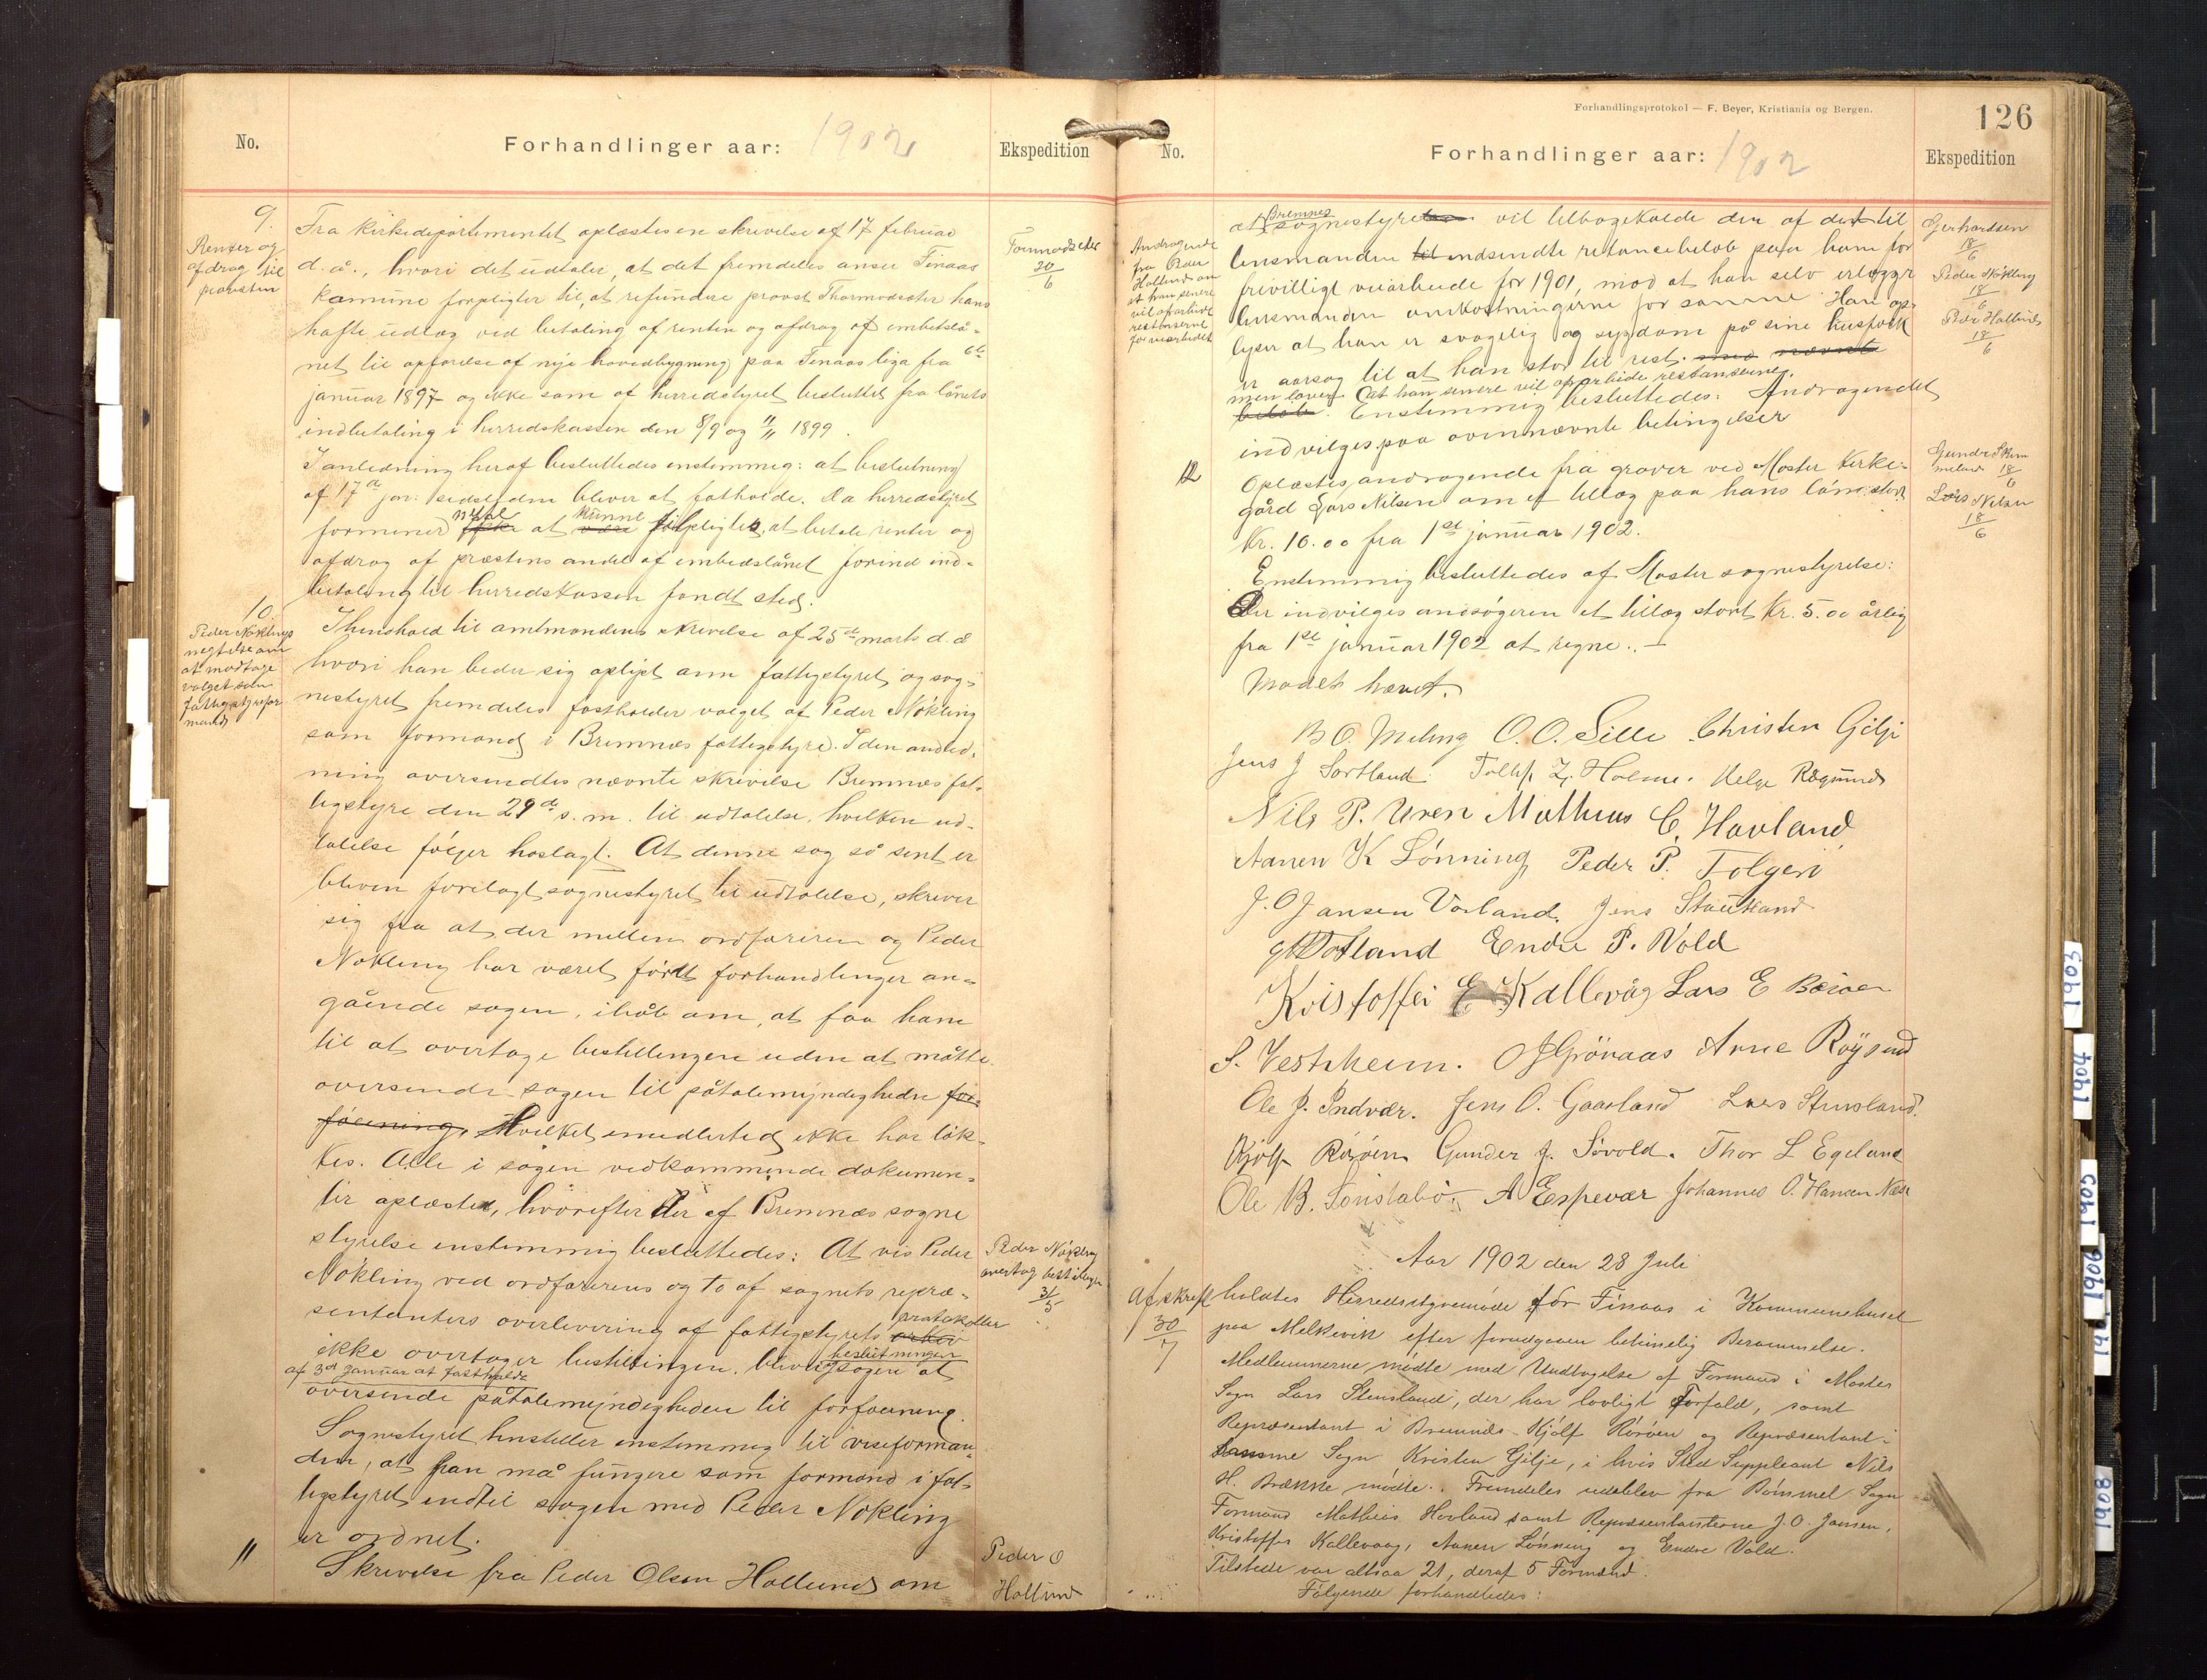 No.
Forhandlinger aar: 1902
Ekspedition
9.
Renter og
afdrag til
provsten
Fra kirkedepartementet oplæstes en skrivelse af 17 februar
d. å., hvori det udtaler, at det fremdeles anser Finaas
kamune forpligtet til, at refundere provst Thormodsæter hans
hafte udlæg ved betaling af renten og afdrag af embetslå-
net til opførelse af nye hovedbygning paa Finaas liga fra 6te
januar 1897 og ikke som af herredstyret besluttet fra lånets
indbetaling i herredskassen den 8/9 og 11/11 1899.
Tormodseter
20/6
I anledning heraf besluttedes enstemmig: at beslutning
af 17de jan: sidstleden bliver at fatholde. Da herredstyret
formener ikke at kunne forpligtes, at betale renter og
afdrag af præstens andel af embedslånet forind ind-
betaling til herredskassen fandt sted.
10.
Peder Nøklings
negtelse om
at modtage
valget som
fattigstyrefor
mand
I henshold til amtmandens skrivelse af 25de marts d. å
hvori han beder sig oplyst om fattigstyret og sog-
nestyret fremdeles fastholder valget af Peder Nökling
som formand i Bremnæs fattigstyre. I den anled-
ning oversendtes nævnte skrivelse Bremnæs fat-
tigstyre den 29de s. m. til udtalelse, hvilken ud-
talelse følger hoslagt. At denne sag så sent er
bleven forelagt sognestyret til udtalelse, skriver
sig fra at der mellem ordføreren og Peder
Nøkling har været ført forhandlinger an-
gående sagen, ihåb om, at faa ham
til at overtage bestillingen uden at måtte
oversende sagen til påtalemyndigheden for-
føiening. Hvilket emidlertid ikke har løk-
kes. Alle i sagen vedkommende dokumen-
ter oplæstes, hvorefter der af Bremnæs sogne
styrelse enstemmig besluttedes: At vis Peder
Nøkling ved ordførerens og to af sognets repræ-
sentanters overlevering af fattigstyrets arkiv protokoller
ikke overtager bestillingen, bliver beslutningen
af 3de januar at fastholde og sagen at
oversende påtalemyndigheden til forføiening.
Peder Nøkling
overtog bestillingen
31/5
Sognestyret henstiller enstemmig til viseforman-
den, at han må fungere som formand i fat-
tigstyret indtil sagen med Peder Nøkling
er ordnet.
11
Skrivelse fra Peder Olsen Hollund om
Peder O
Hollund
Forhandlingsprotokol — F. Beyer, Kristiania og Bergen.
126
No.
Forhandlinger aar: 1902
Ekspedition
Andragende
fra Peder
Hollund om
at han senere
vil oparbeide
restanserne
for veiarbeidet
at Bremnes sognestyre vil tilbagekalde den af dert til
lensmanden til indsendte restancebeløb paa ham for
frivilligt veiarbeide for 1901, mod at han selv erlægger
lensmanden omkostningerne for samme. Han op-
lyser at han er svagelig og sygdom på sine husfolk
er aarsag til at han stor til rest. med nævnte
men lover. At han senere vil oparbeide restanserne.
beløb. Enstemmig besluttedes: Andragendet
indvilges paa ovennævnte betingelser
Gerhardsen
18/6
Peder Nökling
18/6
Peder Hollund
18/6
12
Oplæstes andragende fra graver ved Moster kirke-
gård Lars Nilsen om et tillæg paa hans løn: stort
Kr. 10.00 fra 1ste januar 1902.
Enstemmig besluttedes af Moster sognestyrelse:
Der indvilges andsøgeren et tillæg stort Kr. 5.00 årlig
fra 1ste januar 1902 at regne. –
Mødet hævet.
18/6
Lars Nilsen
18/6
B O. Meling O. O. Lille Christen Gilje
Jens J Sortland. Tollef Z. Holme. Helge Røgsund
Nils P. Uren Mathias C. Havland
Aanen K Lønning Peder P. Folgerø
J. O Jansen Vorland. Jens Stautland
Totland Endre P. Vold
Kristoffer E. Kallevåg Lars E Børøen
S. Vestvheim. O J Grönaas Arne Röysund
Ole J. Indvær. Jens O. Gaasland Lars Stensland.
Kjölf Rörøen Gunder J. Søvold. Thor L Egeland
Ole B. Tonstabø. A Espevær Johannes O. Hansen Næse
Aar 1902 den 28 Juli
Afskreft
30/7
holdtes Herredsstyremøde for Finaas i Kommunehuset
paa Melkevik efter forudgaaen betimelig Berammelse.
Medlemmerne mødte med Undtagelse af Formand i Moster
Sogn Lars Stensland, der har lovligt Forfald, samt
Repræsentant i Bremnæs Kjölf Rörøen og Repræsentant i
samme Sogn Kristen Gilje, i hvis Sted Suppleant Nils
H. Brække mødte. Fremdeles udeblev fra Bömmel Sogn
Formand Mathias Hovland samt Repræsentanterne J. O. Jansen,
Kristoffer Kallevaag, Aanen Lønning og Endre Vold.
Tilstede var altsaa 21, deraf 5 Formænd.
Følgende forhandledes:
1903
1904
1905
1906
1908